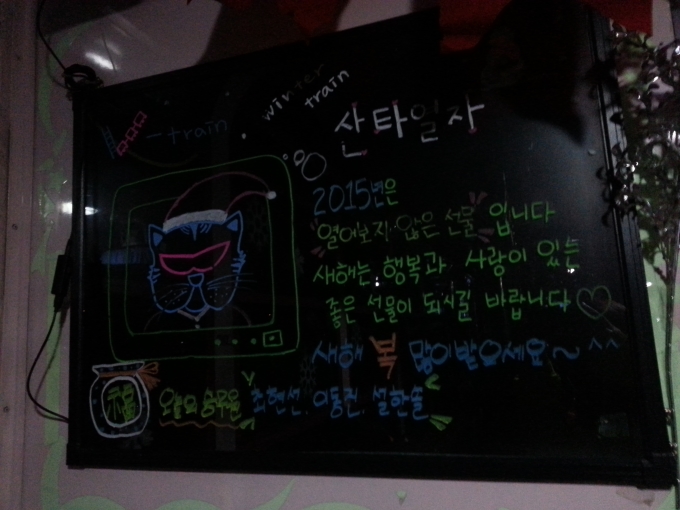 -train
winter
train
산타일자
2015년은
열어보지 않은 선물 입니다
새해는 행복과 사랑이 있는
좋은 선물이 되시길 바랍니다♡
새해 복 많이받으세요~^^
福
오늘의 승무원 최현선, 이동진, 설한솔